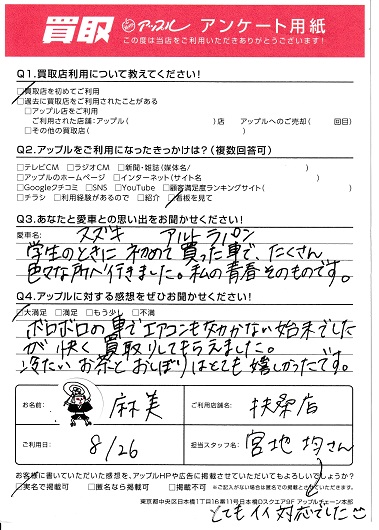 買取 アップル アンケート用紙
この度は当店をご利用いただきありがとうございます！
Q1.買取店利用について教えてください！
☑買取店を初めてご利用
□過去に買取店をご利用されたことがある
□アップル店をご利用
ご利用された店舗：アップル( )店 アップルへのご売却( 回目)
□その他の買取店( )
Q2.アップルをご利用になったきっかけは？(複数回答可)
□テレビCM □ラジオCM □新聞・雑誌(媒体名/ )
□アップルのホームページ □インターネット(サイト名 )
□Googleクチコミ □SNS □YouTube □顧客満足度ランキングサイト( )
□チラシ □利用経験があるので □紹介 ☑看板を見て
Q3.あなたと愛車との思い出をお聞かせください！
愛車名: スズキ アルトラパン
学生のときに初めて買った車で、たくさん
色々な所へ行きました。私の青春そのものです。
Q4.アップルに対する感想をぜひお聞かせください！
☑大満足 □満足 □もう少し □不満
ボロボロの車でエアコンも効かない始末でした
が快く買取りしてもらえました。
冷たいお茶とおしぼりはとても嬉しかったです。
お名前: 麻美
ご利用店舗名: 扶桑店
ご利用日: 8/26
担当スタッフ名: 宮地 均さん
お客様に書いていただいた感想を、アップルHPや広告に掲載させていただいてもよろしいでしょうか？
☑実名で掲載可 □匿名なら掲載可 □掲載不可 ※ご記入がない場合は匿名での掲載とさせていただきます。
東京都中央区日本橋1丁目16番11号日本橋Dスクエア9F アップルチェーン本部
とてもイイ対応でした